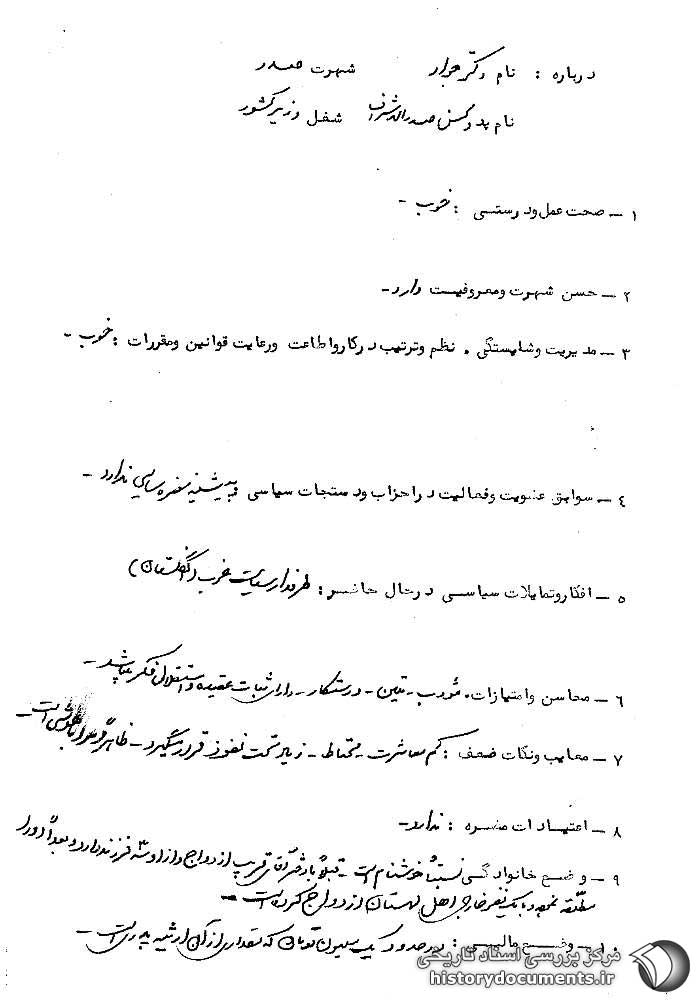 درباره : نام دکتر جواد شهرت صدر
نام پدر محسن صدرالاشراف شغل وزیر کشور
۱ – صحت عمل ودرستی : خوب –
۲ – حسن شهرت ومعروفیت دارد–
۳ – مدیریت وشایستگی . نظم وترتیب درکارواطاعت ورعایت قوانین ومقررات : خوب –
۴ – سوابق عضویت وفعالیت دراحزاب ودستجات سیاسی پیشینه مضره سیاسی ندارد –
۵ – افکاروتمایلات سیاسی درحال حاضر : طرفدار سیاست غرب (انگلستان)
۶ – محاسن وامتیازات . مؤدب – متین – درستکار – دارای ثبات عقیده و استقلال فکر میباشد –
۷ – معایب ونکات ضعف : کم معاشرت – محتاط – زیاد تحت نفوذ قرار میگیرد – ظاهراً
۸ – اعتیادات مضره : ندارد–
۹ – وضع خانوادگی نسبتاً خوشنام است – قبلاً با دختر آقای قریب ازدواج و از او سه فرزند دارد و بعداً او را
مطلقه نموده و با یکنفر خارجی اهل لهستان ازدواج کرده است –
۱۰ – وضع مالی : در حدود یک میلیون تومان که مقداری از آن ارثیه پدری است –
مرکز بررسی اسناد تاریخی
historydocuments.ir